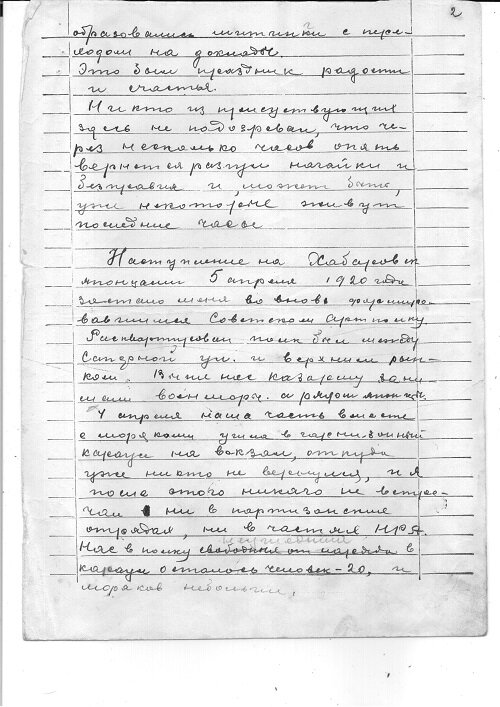 2
образовались митинги с пере-
ходом на доклады.
Это был праздник радости
и счастья.
Никто из присутствующих
здесь не подозревал, что че-
рез несколько часов опять
вернется разгул нагайки и
безправия и, может быть,
уже некоторые живут
последние часы
Наступление на Хабаровск
японцами 5 апреля 1920 года
застало меня во вновь формиро-
вавшимся Советском артполку
Расквартирован полк был между
Саперной ул. и верхним рын-
ком. казарму зани-
мали воен.моры. а рядом японцы.
4 апреля наша часть вместе
с моряками ушла в гарнизонный
караул на вокзал, откуда
уже никто не вернулся, и я
после этого никого не встре-
чал ни в партизанских
отрядах, ни в частях НРА.
Нас в полку свободных от наряда в
караул осталось человек-20, и
моряков небольш.